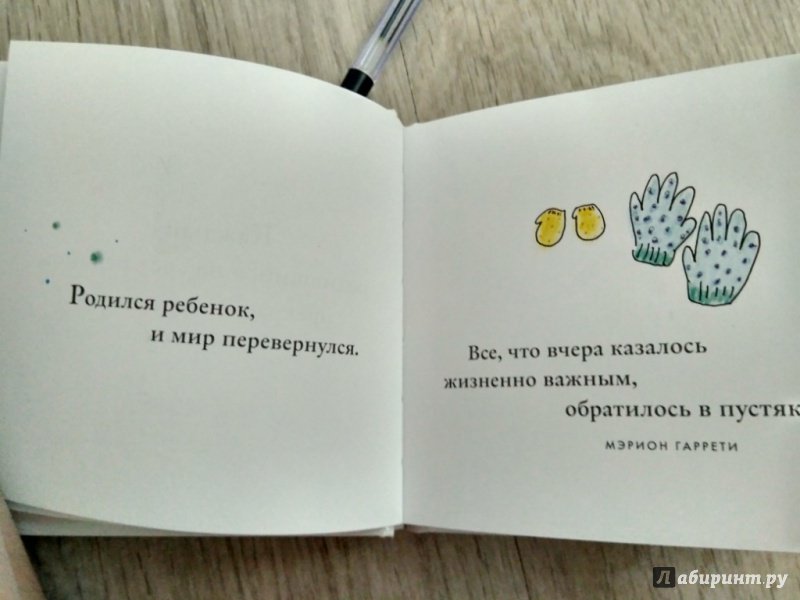 Родился ребенок,
и мир перевернулся.
Все, что вчера казалось
жизненно важным,
обратилось в пустяк
МЭРИОН ГАРРЕТИ
Лабиринт.ру